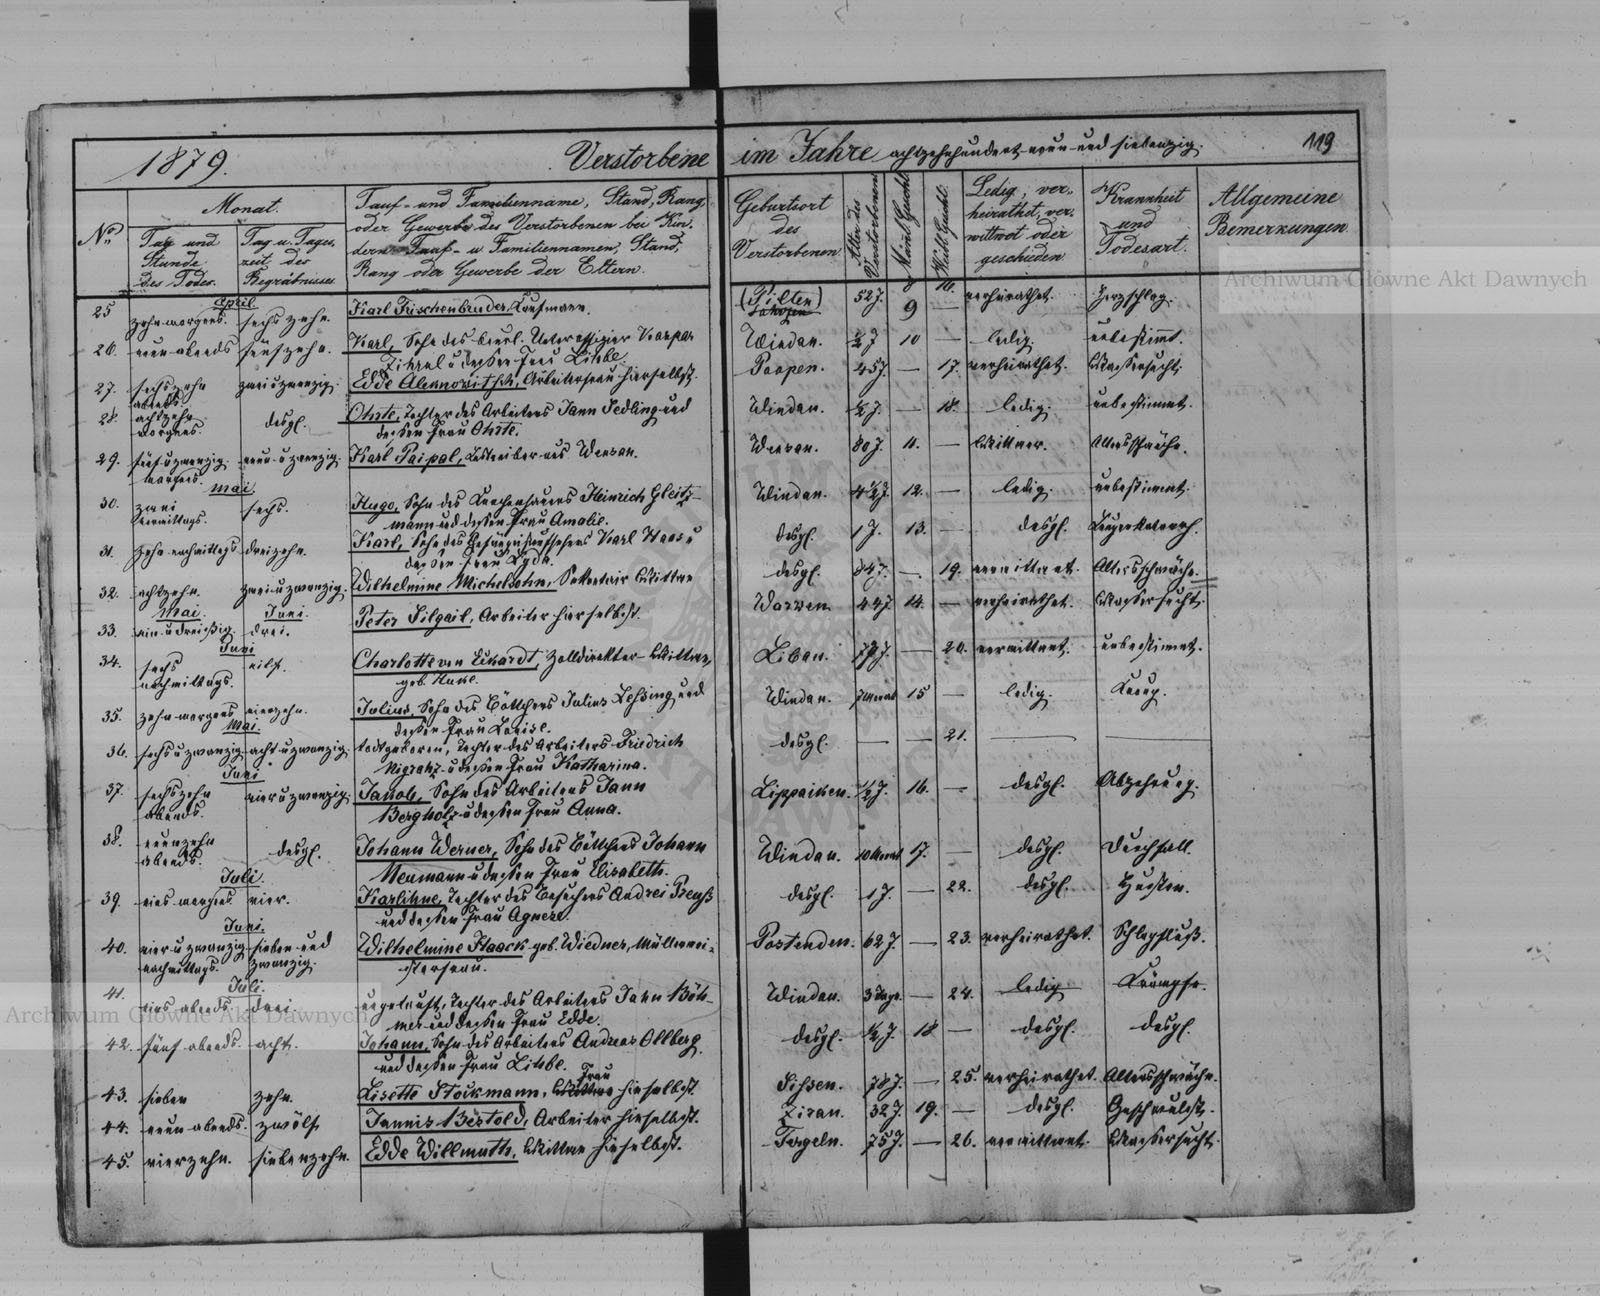 1879.
Verstorbene im Jahre achtzehnhundert neun und siebenzig.
119
No.
Monat.
Tag und Stunde des Todes.
Tag u. Tages- zeit des Begräbnisses
Tauf- und Familienname, Stand, Rang,
oder Gewerbe des Verstorbenen bei Kin-
dern Tauf- u. Familiennamen, Stand,
Rang oder Gewerbe der Eltern.
Geburtsort des Verstorbenen
Alter des Verstorbenen
Männl. Geschl.
Weibl. Geschl.
Ledig, ver- heirathet, ver- wittwet oder geschieden
Krankheit und Todesart.
Allgemeine Bemerkungen.
April
25 zehn morgens. sechszehn. Karl Frischenbruder, Kaufmann. (Pilten) 52 J. 9 — verheirathet. Herzschlag.
26. neun abends fünfzehn. Karl, Sohn des beurl. Unteroffizier Kaspar Windau. ½ J 10 — ledig. unbestimmt.
u dessen Frau Lihbe.
27. sechszehn abends zwei u zwanzig. Edde Alennowitsch, Arbeiterfrau hierselbst. Paopen. 45 J. — 17. verheirathet. Wassersucht.
28. achtzehn morgens. desgl. Ohrte, Tochter des Arbeiters Jann Sedling und Windau. ½ J. — 18. ledig. unbestimmt.
dessen Frau Ohrte.
29. fünf u zwanzig morgens. neun u zwanzig. Karl Paipal, aus Wensau. Wensau. 80 J. 11. — Wittwer. Altersschwäche.
Mai
30. zwei vormittags. sechs. Hugo, Sohn des Heinrich Gleitz- Windau. 4½ J. 12. — ledig. unbestimmt.
mann und dessen Frau Amalie.
31. zehn nachmittags dreizehn. Karl, Sohn des Gefängnißaufsehers Karl Haas u desgl. 1 J. 13. — desgl. Lungenkatarrh.
dessen Frau Lyda.
32. achtzehn. zwei u zwanzig. Wilhelmine Michelsohn, Sekretair Wittwe desgl. 84 J. — 19. verwittwet. Altersschwäche.
Mai. Juni.
33. ein u dreißig. drei. Peter Silgail, Arbeiter hierselbst. Warwen. 44 J. 14. — verheirathet. Wassersucht.
Juni
34. sechs nachmittags. eilf. Charlotte von Eckardt, Zolldirektor-Wittwe, Libau. 77 J. — 20. verwittwet. unbestimmt.
35. zehn morgens vierzehn. Julius, Sohn des Böttchers Julius Lessing und Windau. 7 Monat 15 — ledig.
dessen Frau Louise.
Mai.
36. sechs u zwanzig acht u zwanzig. todtgeboren, Tochter des Arbeiters Friedrich desgl. — — 21. — —
u dessen Frau Katharina.
Juni
37. sechszehn abends. vier u zwanzig Jakob, Sohn des Arbeiters Jann Lippaiken. ½ J. 16. — desgl. Abzehrung.
Bergholz u dessen Frau Anna.
38. neunzehn abends. desgl. Johann Werner, Sohn des Böttchers Johann Windau. 10 Monat 17. — desgl. Durchfall.
Neumann u dessen Frau Elisabeth.
Juli.
39. eins morgens vier. Karlihne, Tochter des Besuchers Andrei Preuß desgl. 1 J. — 22. desgl. Husten.
und dessen Frau Agnese.
Juni.
40. vier u zwanzig nachmittags. sieben und zwanzig. Wilhelmine Haack geb. Wiedner, Müllermei- Postenden. 62 J. — 23. verheirathet. Schlagfluß.
sterfrau.
Juli.
41. eins abends drei. ungetauft, Tochter des Arbeiters Jahn Böh- Windau. 3 Tage. — 24. ledig Krämpfe.
mer und dessen Frau Edde.
42. fünf abends. acht. Johann, Sohn des Arbeiters Andreas Ollberg desgl. ½ J. 18 — desgl. desgl.
und dessen Frau Lihbe.
43. sieben zehn. Lisette Stockmann, Wittwe Frau hieselbst. Sihsen. 78 J. — 25. verheirathet. Altersschwäche.
44. neun abends. zwölf. Jannis Bertold, Arbeiter hieselbst. Ziran. 32 J. 19. — desgl. Geschwulst.
45. vierzehn. siebenzehn. Edde Willmuth, Wittwe hieselbst. Targeln. 75 J. — 26. verwittwet. Wassersucht.
Archiwum Główne Akt Dawnych
Archiwum Główne Akt Dawnych